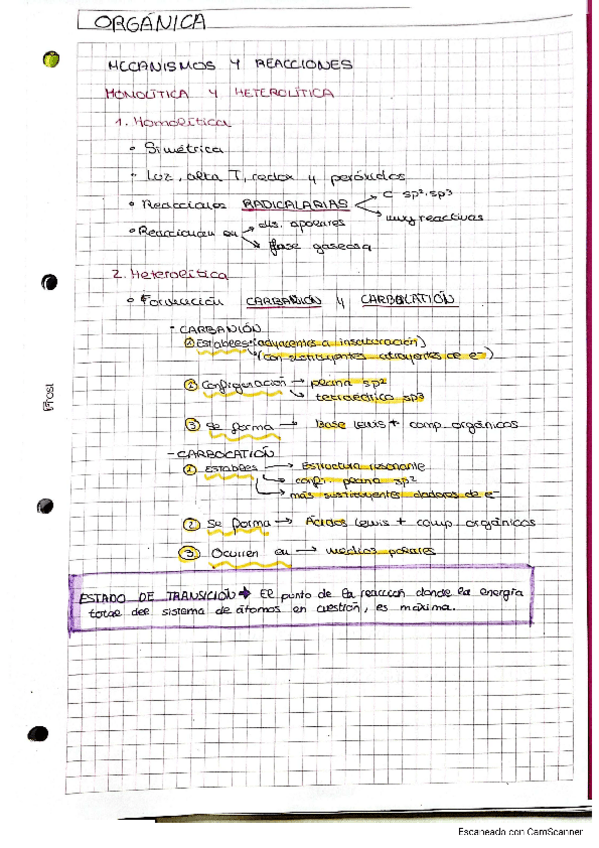 ORGÁNICA
MECANISMOS Y REACCIONES
HOMOLÍTICA Y HETEROLÍTICA
1. Homolítica
• Simétrica
• Luz, alta T, redox y peróxidos
• Reacciones RADICALARIAS → C sp², sp³
→ muy reactivas
• Reaccionan en → dis. apolares
→ fase gaseosa
2. Heterolítica
• Formación CARBANIÓN y CARBOCATIÓN
- CARBANIÓN
① Estables: (adyacentes a insaturación)
↳ (con sustituyentes atrayentes de e⁻)
② Configuración → plana sp²
↳ tetraédrico sp³
③ Se forma → Base Lewis + comp. orgánicos
- CARBOCATIÓN
① Estables → Estructura resonante
↳ confi. plana sp²
↳ más sustituyentes dadores de e⁻
② Se forma → Ácidos Lewis + comp orgánicos
③ Ocurren en → medios polares
ESTADO DE TRANSICIÓN → El punto de la reacción donde la energía
total del sistema de átomos en cuestión, es máxima.
Prosi
Escaneado con CamScanner